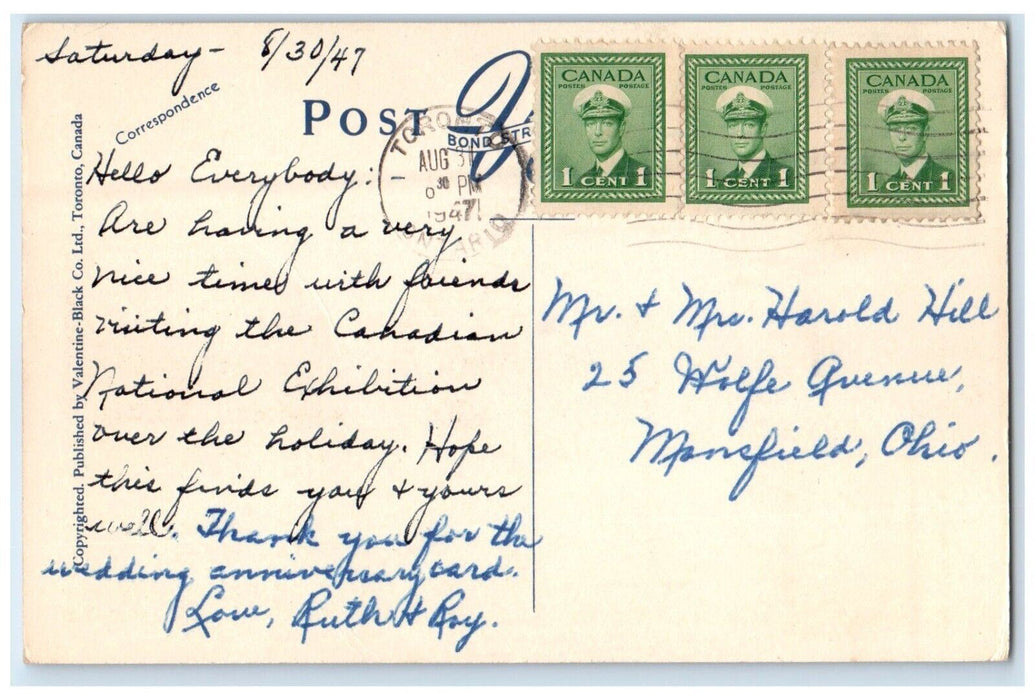 Saturday - 8/30/47
Correspondence
POST
BOND STR
TORONTO
AUG 31
30 PM
1947
ONTARIO
CANADA
POSTES POSTAGE
1 CENT 1
CANADA
POSTES POSTAGE
1 CENT 1
CANADA
POSTES POSTAGE
1 CENT 1
Copyrighted. Published by Valentine-Black Co. Ltd., Toronto, Canada
Hello Everybody: -
Are having a very
nice time with friends
visiting the Canadian
National Exhibition
over the holiday. Hope
this finds you & yours
well. Thank you for the
wedding anniversary card.
Love, Ruth & Roy.
Mr. & Mrs. Harold Hill
25 Wolfe Avenue,
Mansfield, Ohio.